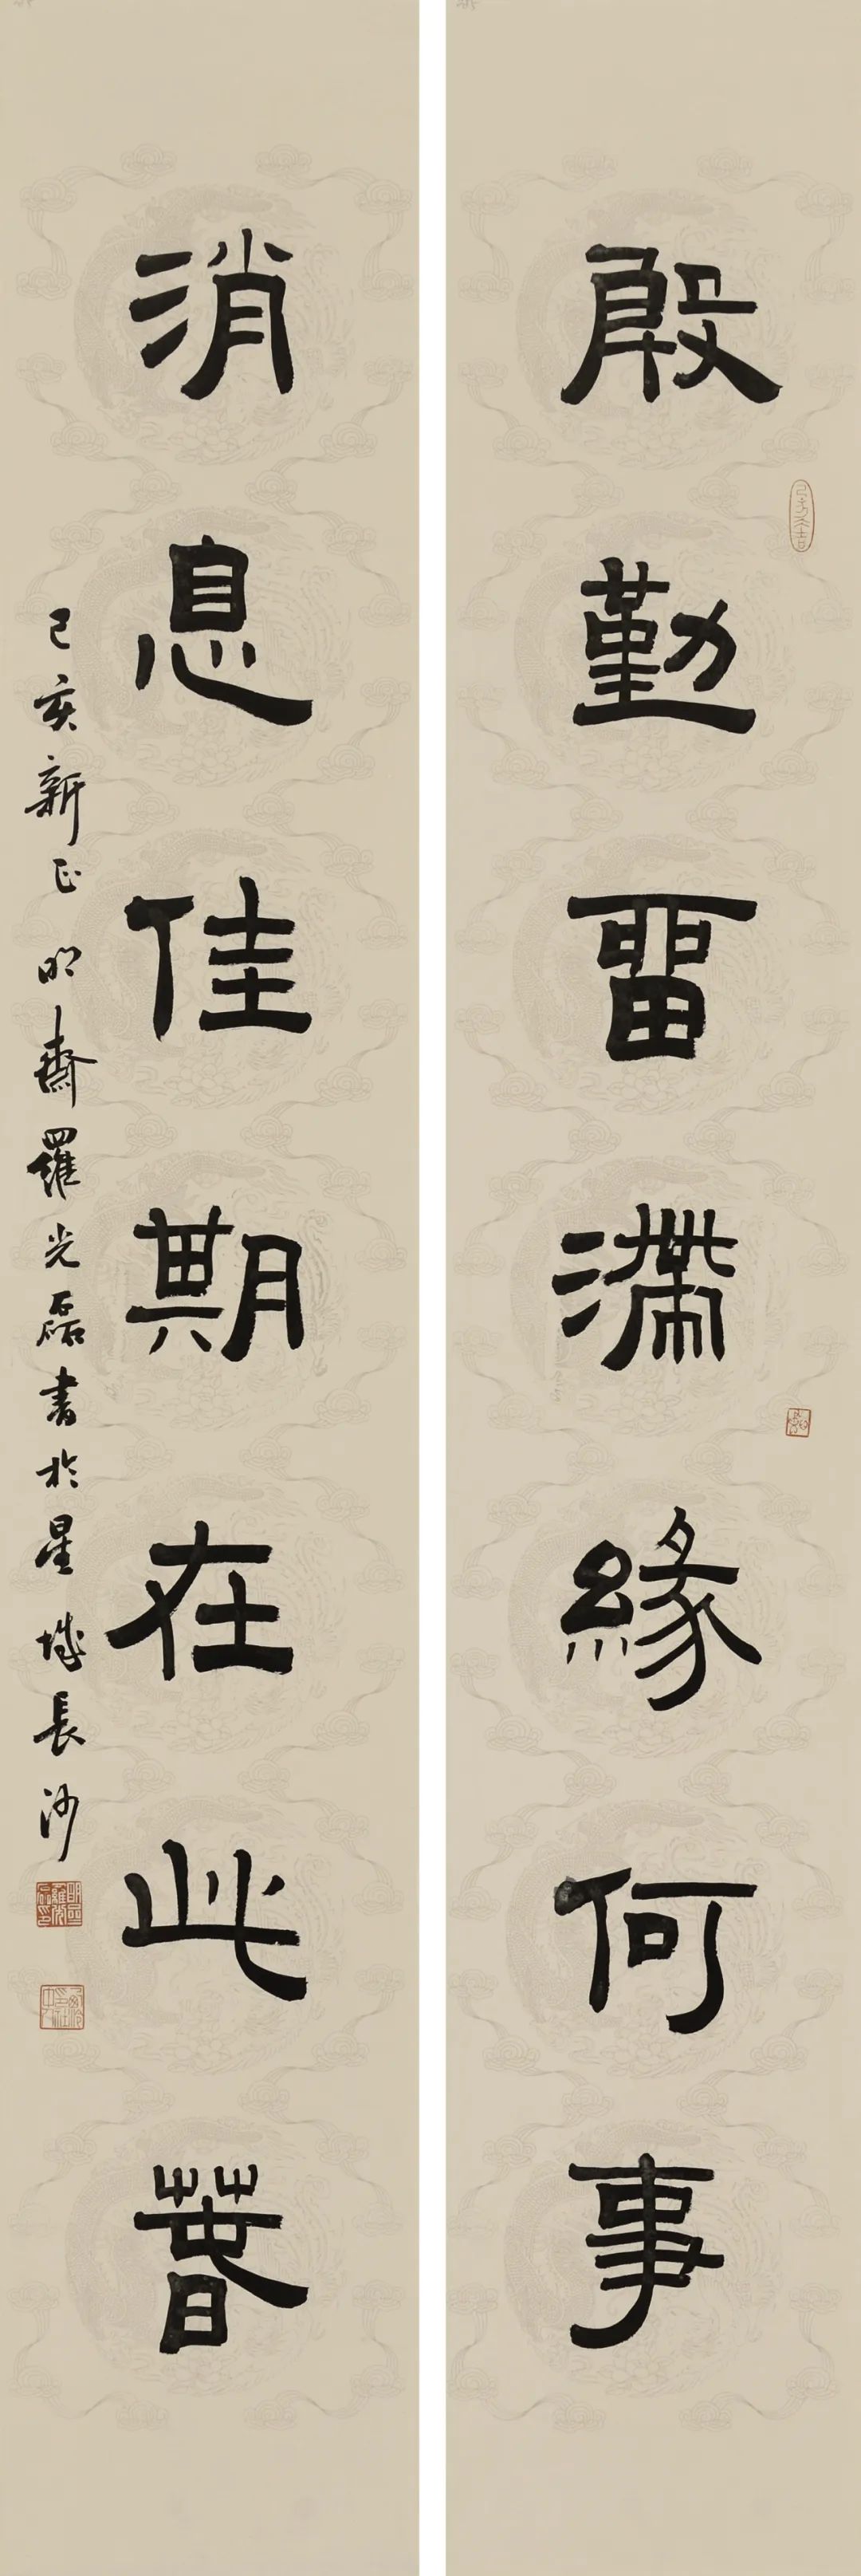 殷勤畱滯緣何事
消息佳期在此萅
己亥新正明齋羅光磊書於星城長沙